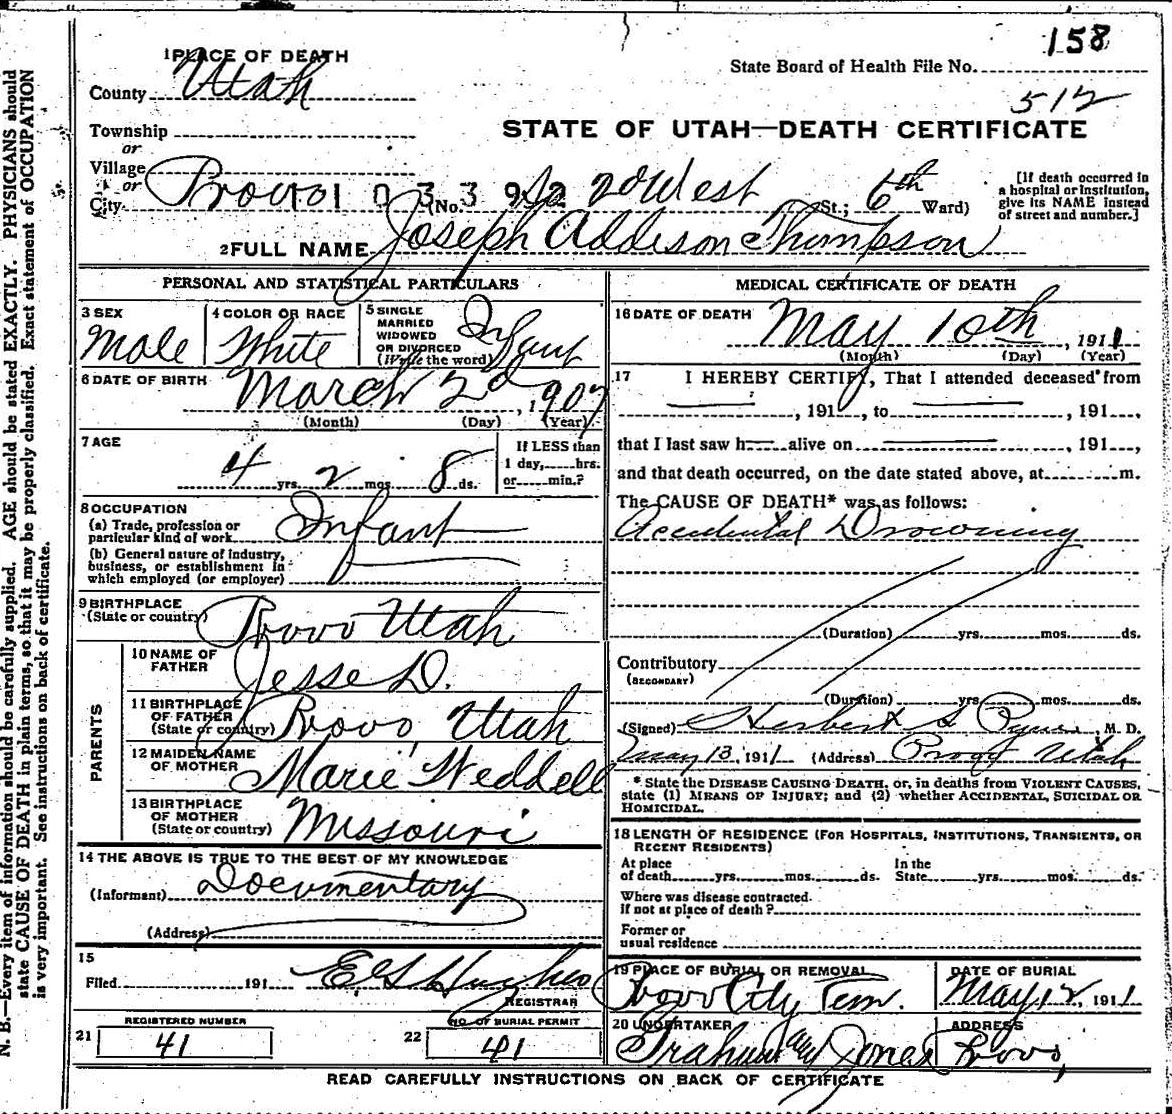 158
State Board of Health File No.
512
1 PLACE OF DEATH
County Utah
STATE OF UTAH—DEATH CERTIFICATE
Township
or
Village
or
City Provo 1 0 3 3 9 (No. 2d West St.; 6th Ward)
[If death occurred in
a hospital or institution,
give its NAME instead
of street and number.]
2 FULL NAME Joseph Addison Thompson
PERSONAL AND STATISTICAL PARTICULARS
3 SEX
Male
4 COLOR OR RACE
White
5 SINGLE
MARRIED
WIDOWED
OR DIVORCED
(Write the word)
Infant
6 DATE OF BIRTH
March 2d, 1907
(Month) (Day) (Year)
7 AGE
4 yrs. 2 mos. 8 ds.
If LESS than
1 day,.....hrs.
or.....min.?
8 OCCUPATION
(a) Trade, profession or
particular kind of work
Infant
(b) General nature of industry,
business, or establishment in
which employed (or employer)
9 BIRTHPLACE
(State or country)
Provo Utah
PARENTS
10 NAME OF
FATHER
Jesse D.
11 BIRTHPLACE
OF FATHER
(State or country)
Provo, Utah
12 MAIDEN NAME
OF MOTHER
Marie Weddell
13 BIRTHPLACE
OF MOTHER
(State or country)
Missouri
14 THE ABOVE IS TRUE TO THE BEST OF MY KNOWLEDGE
(Informant) Documentary
(Address)
15
Filed 191 E. S. Hughes
REGISTRAR
REGISTERED NUMBER
21 41
NO. OF BURIAL PERMIT
22 41
MEDICAL CERTIFICATE OF DEATH
16 DATE OF DEATH
May 10th, 1911
(Month) (Day) (Year)
17 I HEREBY CERTIFY, That I attended deceased from
, 191, to , 191,
that I last saw h alive on , 191,
and that death occurred, on the date stated above, at m.
The CAUSE OF DEATH* was as follows:
Accidental Drowning
(Duration) yrs. mos. ds.
Contributory
(SECONDARY)
(Duration) yrs. mos. ds.
(Signed) Herbert S Pyne, M. D.
May 13, 1911 (Address) Provo Utah
* State the DISEASE CAUSING DEATH, or, in deaths from VIOLENT CAUSES,
state (1) MEANS OF INJURY; and (2) whether ACCIDENTAL, SUICIDAL OR
HOMICIDAL.
18 LENGTH OF RESIDENCE (FOR HOSPITALS, INSTITUTIONS, TRANSIENTS, OR
RECENT RESIDENTS)
At place
of death yrs. mos. ds.
In the
State yrs. mos. ds.
Where was disease contracted.
if not at place of death?
Former or
usual residence
19 PLACE OF BURIAL OR REMOVAL
Provo City Cem.
DATE OF BURIAL
May 12, 1911
20 UNDERTAKER
Jones
ADDRESS
Provo,
READ CAREFULLY INSTRUCTIONS ON BACK OF CERTIFICATE
N. B.—Every item of information should be carefully supplied. AGE should be stated EXACTLY. PHYSICIANS should
state CAUSE OF DEATH in plain terms, so that it may be properly classified. Exact statement of OCCUPATION
is very important. See instructions on back of certificate.